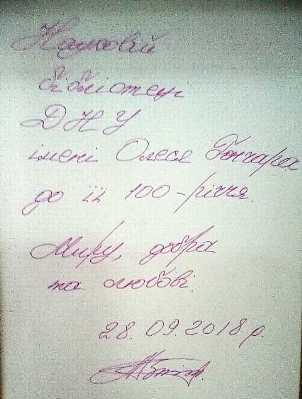 Науковій
бібліотеці
ДНУ
імені Олеся Гончара
до її 100-річчя.
Миру, добра
та любові.
28.09.2018 р.